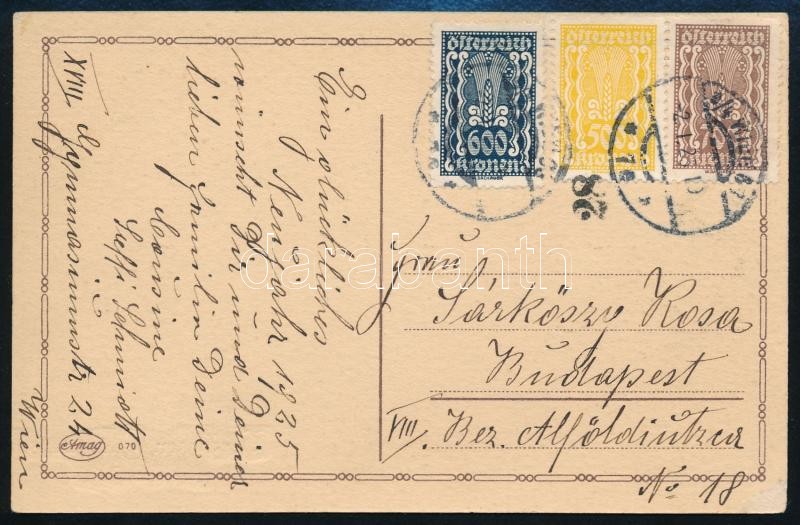 österreich
600
kronen
österreich
500
kronen
österreich
28
Ein glückliches
Neujahr 1925
wünscht Dir und Deiner
lieben Familie Deine
Cousine
Steffi Schmidt
XVIII. Gymnasiumstr 24
Wien
Frau
Sárközy Rosa
Budapest
VIII. Bez. Alföldiutza
No 18
Amag
070
darabanth